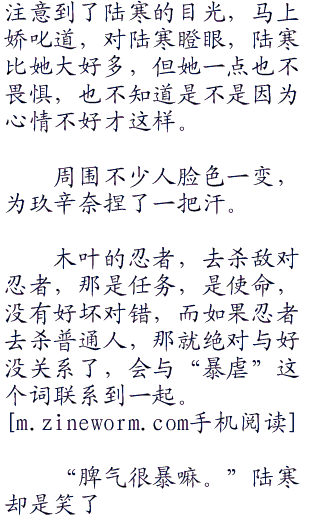 注意到了陆寒的目光，马上
娇叱道，对陆寒瞪眼，陆寒
比她大好多，但她一点也不
畏惧，也不知道是不是因为
心情不好才这样。
周围不少人脸色一变，
为玖辛奈捏了一把汗。
木叶的忍者，去杀敌对
忍者，那是任务，是使命，
没有好坏对错，而如果忍者
去杀普通人，那就绝对与好
没关系了，会与“暴虐”这
个词联系到一起。
[m.zineworm.com手机阅读]
“脾气很暴嘛。”陆寒
却是笑了